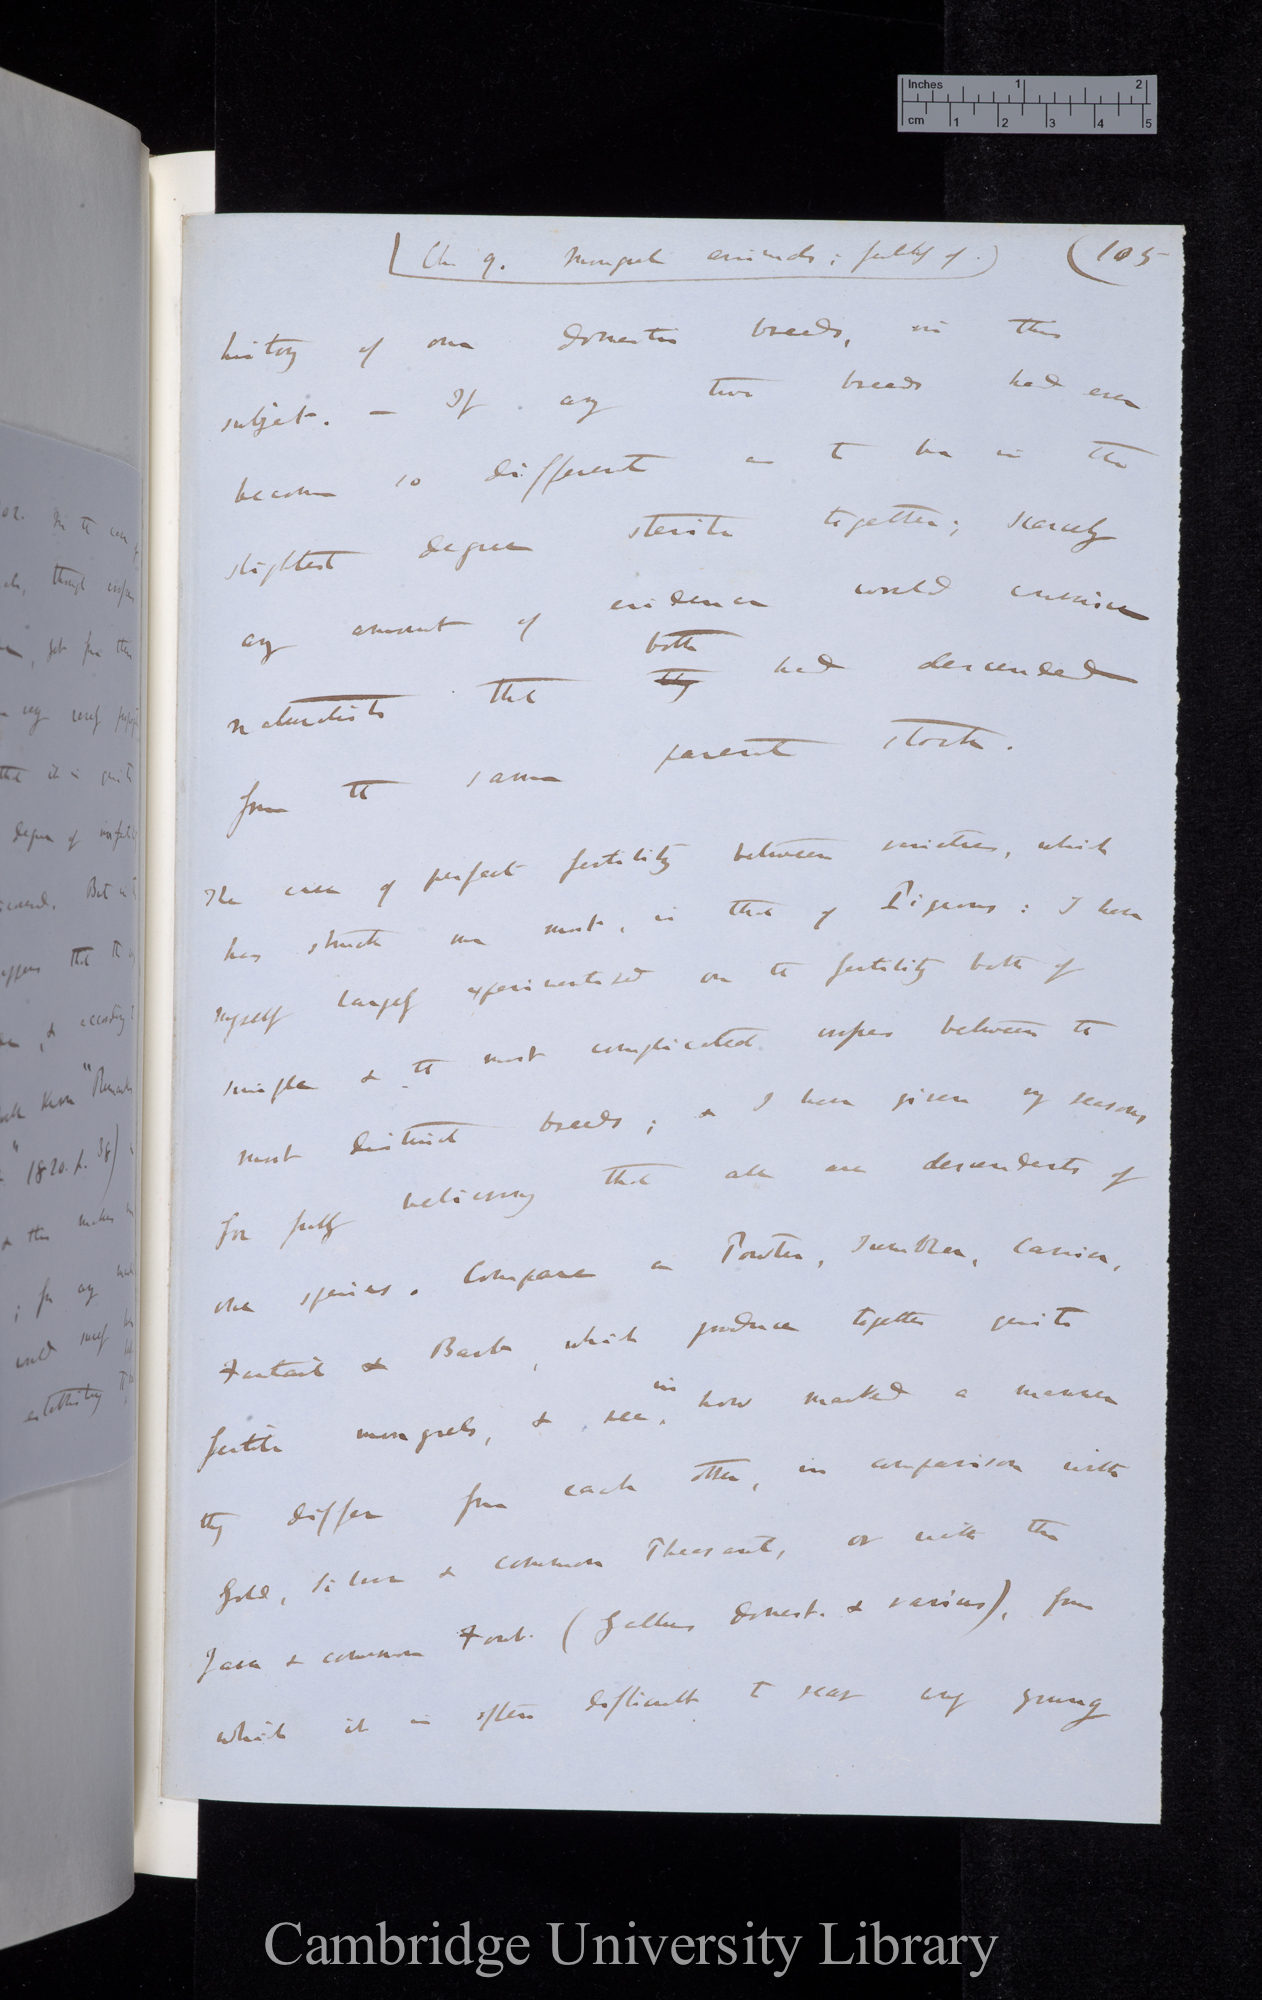 Inches 1 2
cm 1 2 3 4 5
Ch. 9. Mongrel animals; fertility of.) (105
history of our domestic breeds, in this
subject. — If any two breeds had ever
become so different as to be in the
slightest degree sterile together; scarcely
any amount of evidence would convince
both
naturalists that they had descended
from the same parent stock.
The case of perfect fertility between varieties, which
has struck me most, is that of Pigeons: I have
myself largely experimentised on the fertility both of
simple & the most complicated crosses between the
most distinct breeds; & I have given my reasons
for fully believing that all are descendants of
one species. Compare a Pouter, Tumbler, Carrier,
Fantail & Barb, which produce together quite
in
fertile mongrels, & see, how marked a manner
they differ from each other, in comparison with
Gold, Silver & common Pheasant, or with the
Java & common Fowl. (Gallus domest. & varius), from
which it is often difficult to rear any young
Cambridge University Library